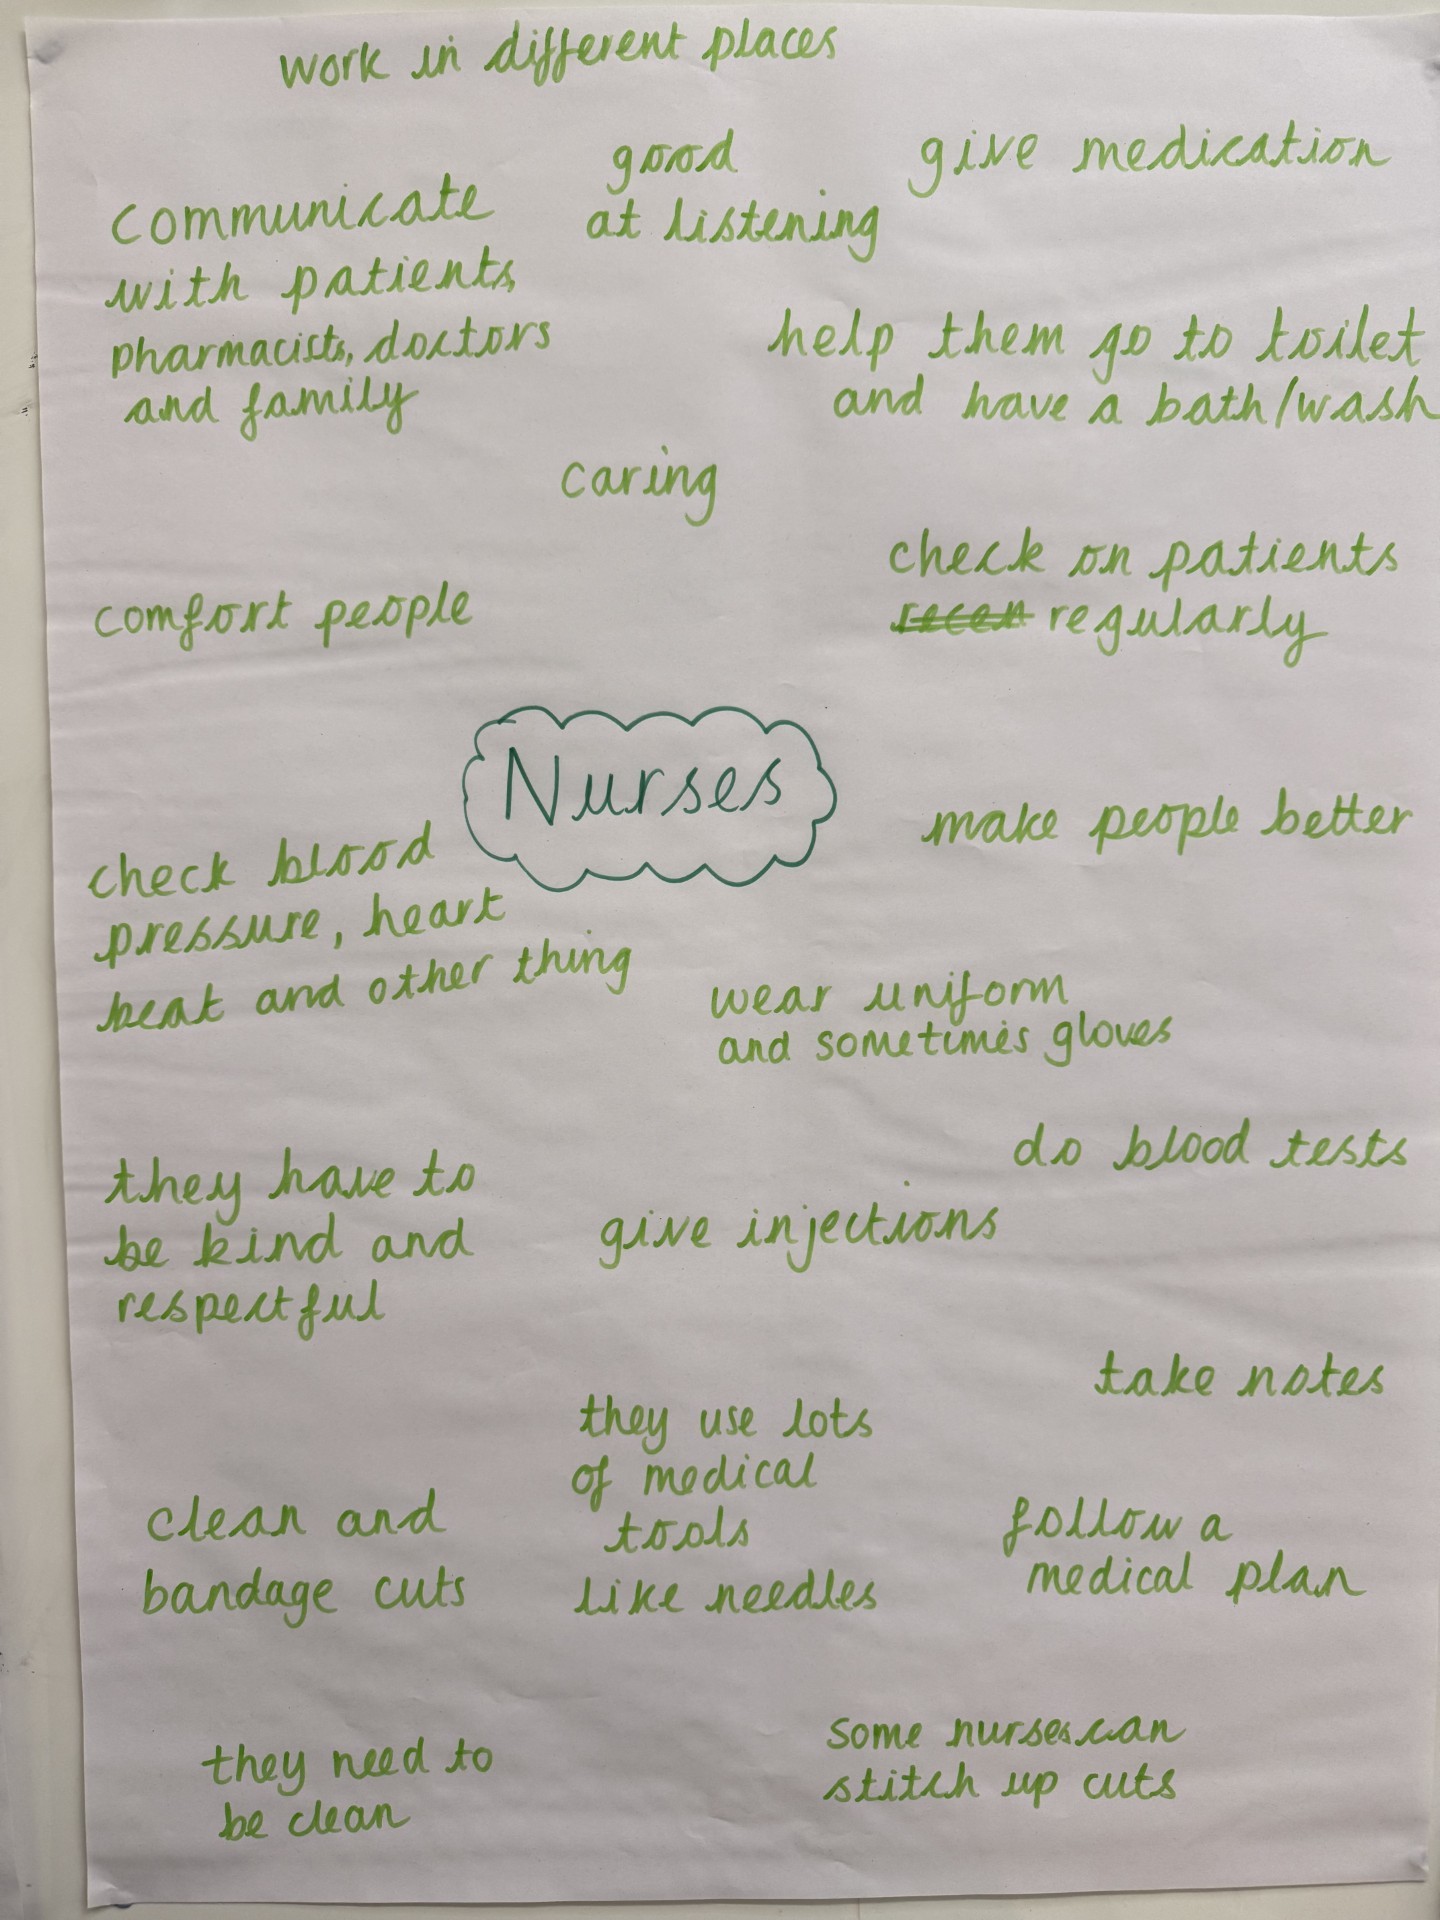 work in different places
good
at listening
give medication
communicate
with patients,
pharmacists, doctors
and family
help them go to toilet
and have a bath/wash
caring
check on patients
recen regularly
comfort people
Nurses
make people better
check blood
pressure, heart
beat and other thing
wear uniform
and sometimes gloves
do blood tests
they have to
be kind and
respectful
give injections
take notes
they use lots
of medical
tools
like needles
clean and
bandage cuts
follow a
medical plan
they need to
be clean
some nurses can
stitch up cuts